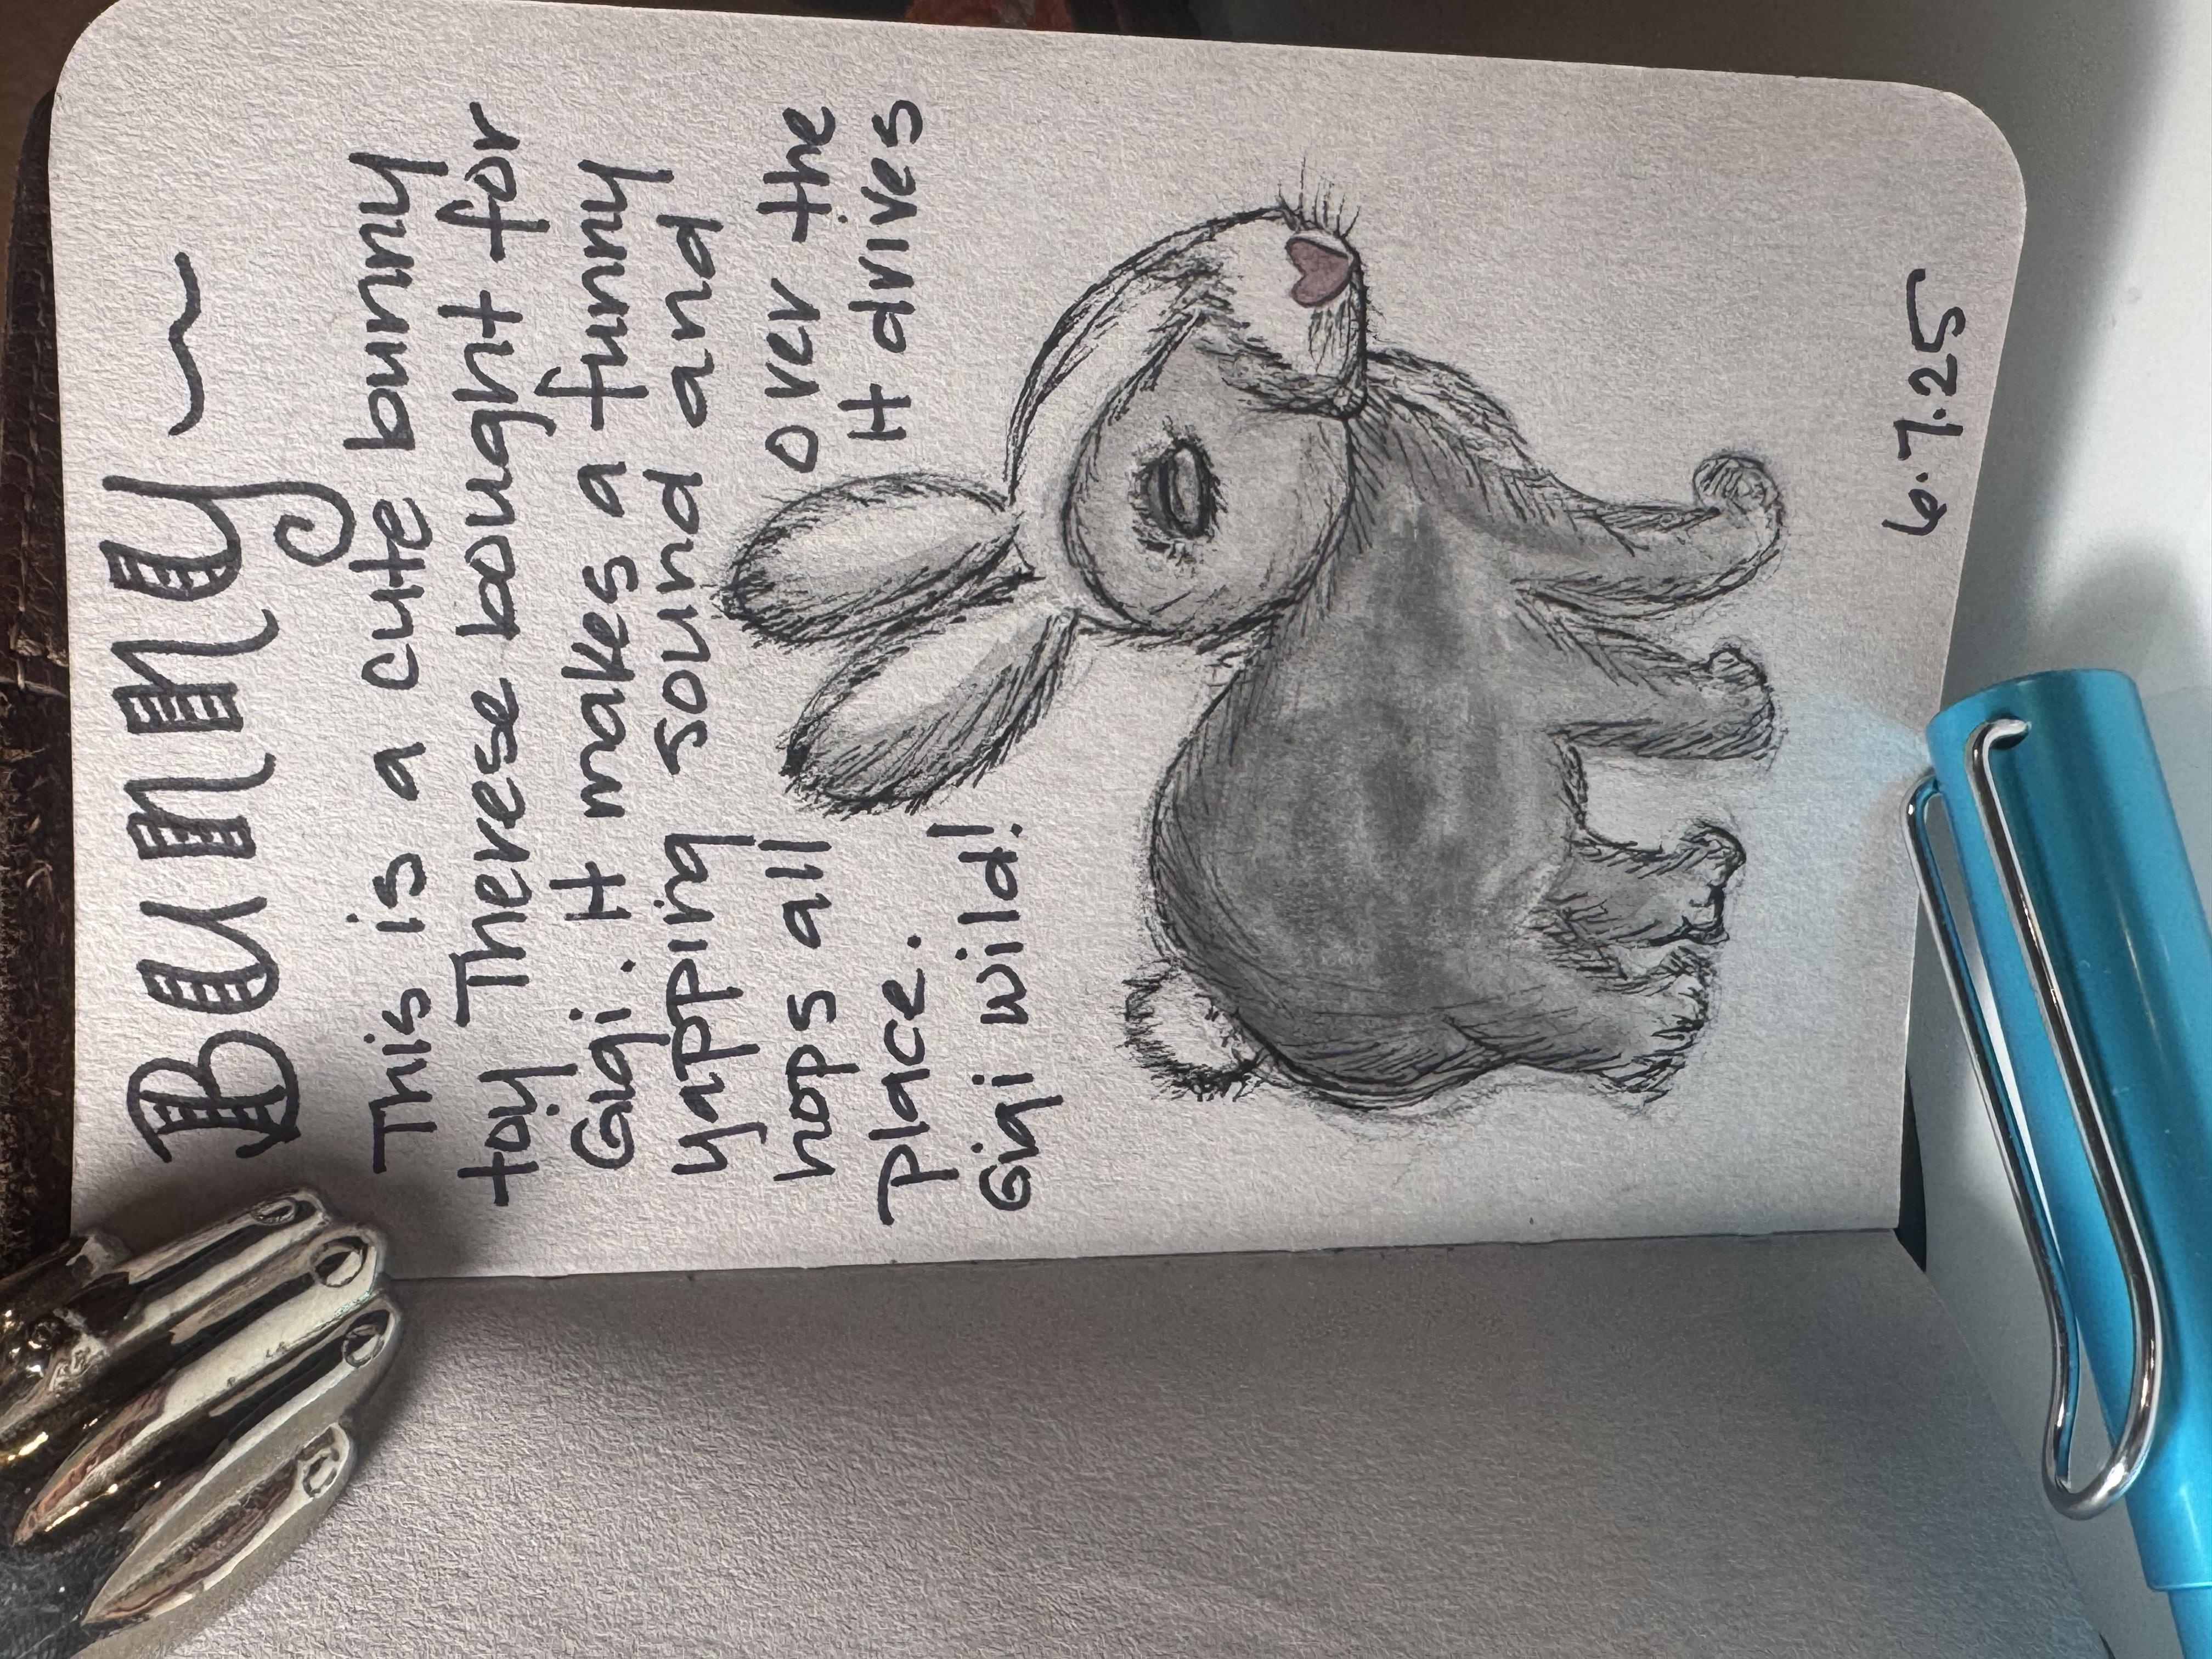 Bunny ~
This is a cute bunny
toy Therese bought for
Gigi. It makes a funny
yapping sound and
hops all over the
place. It drives
Gigi wild!
6.7.25